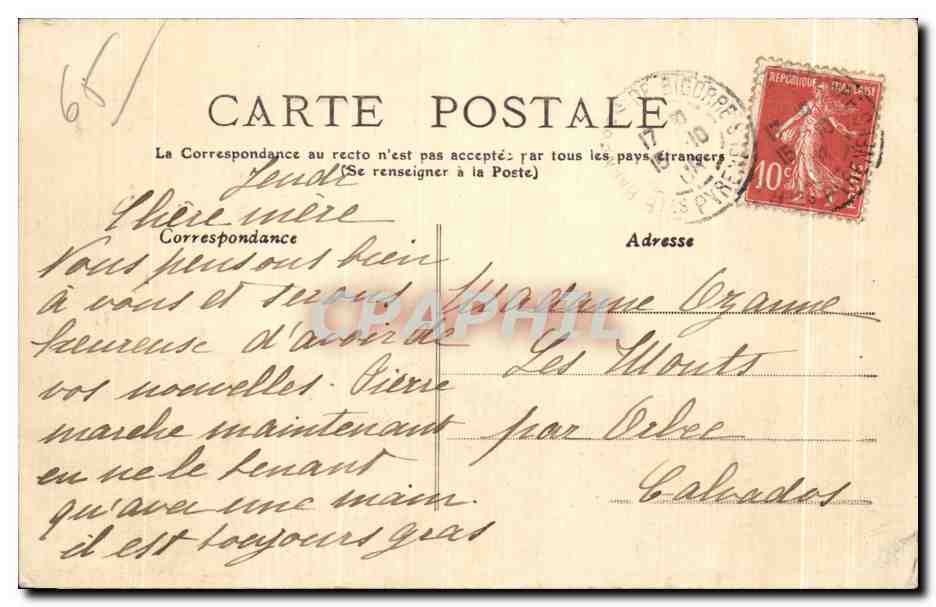 65
CARTE POSTALE
La Correspondance au recto n'est pas acceptée par tous les pays étrangers
(Se renseigner à la Poste)
Jeudi
Chère mère
Correspondance
Nous pensons bien
à vous et serons
heureuse d'avoir de
vos nouvelles. Pierre
marche maintenant
en ne le tenant
qu'avec une main
il est toujours gras
Adresse
Madame Ozanne
Les Monts
par Orbec
Calvados
REPUBLIQUE FRANÇAISE
10c
DE BIGORRE
PYRENEES
CPAPHIL